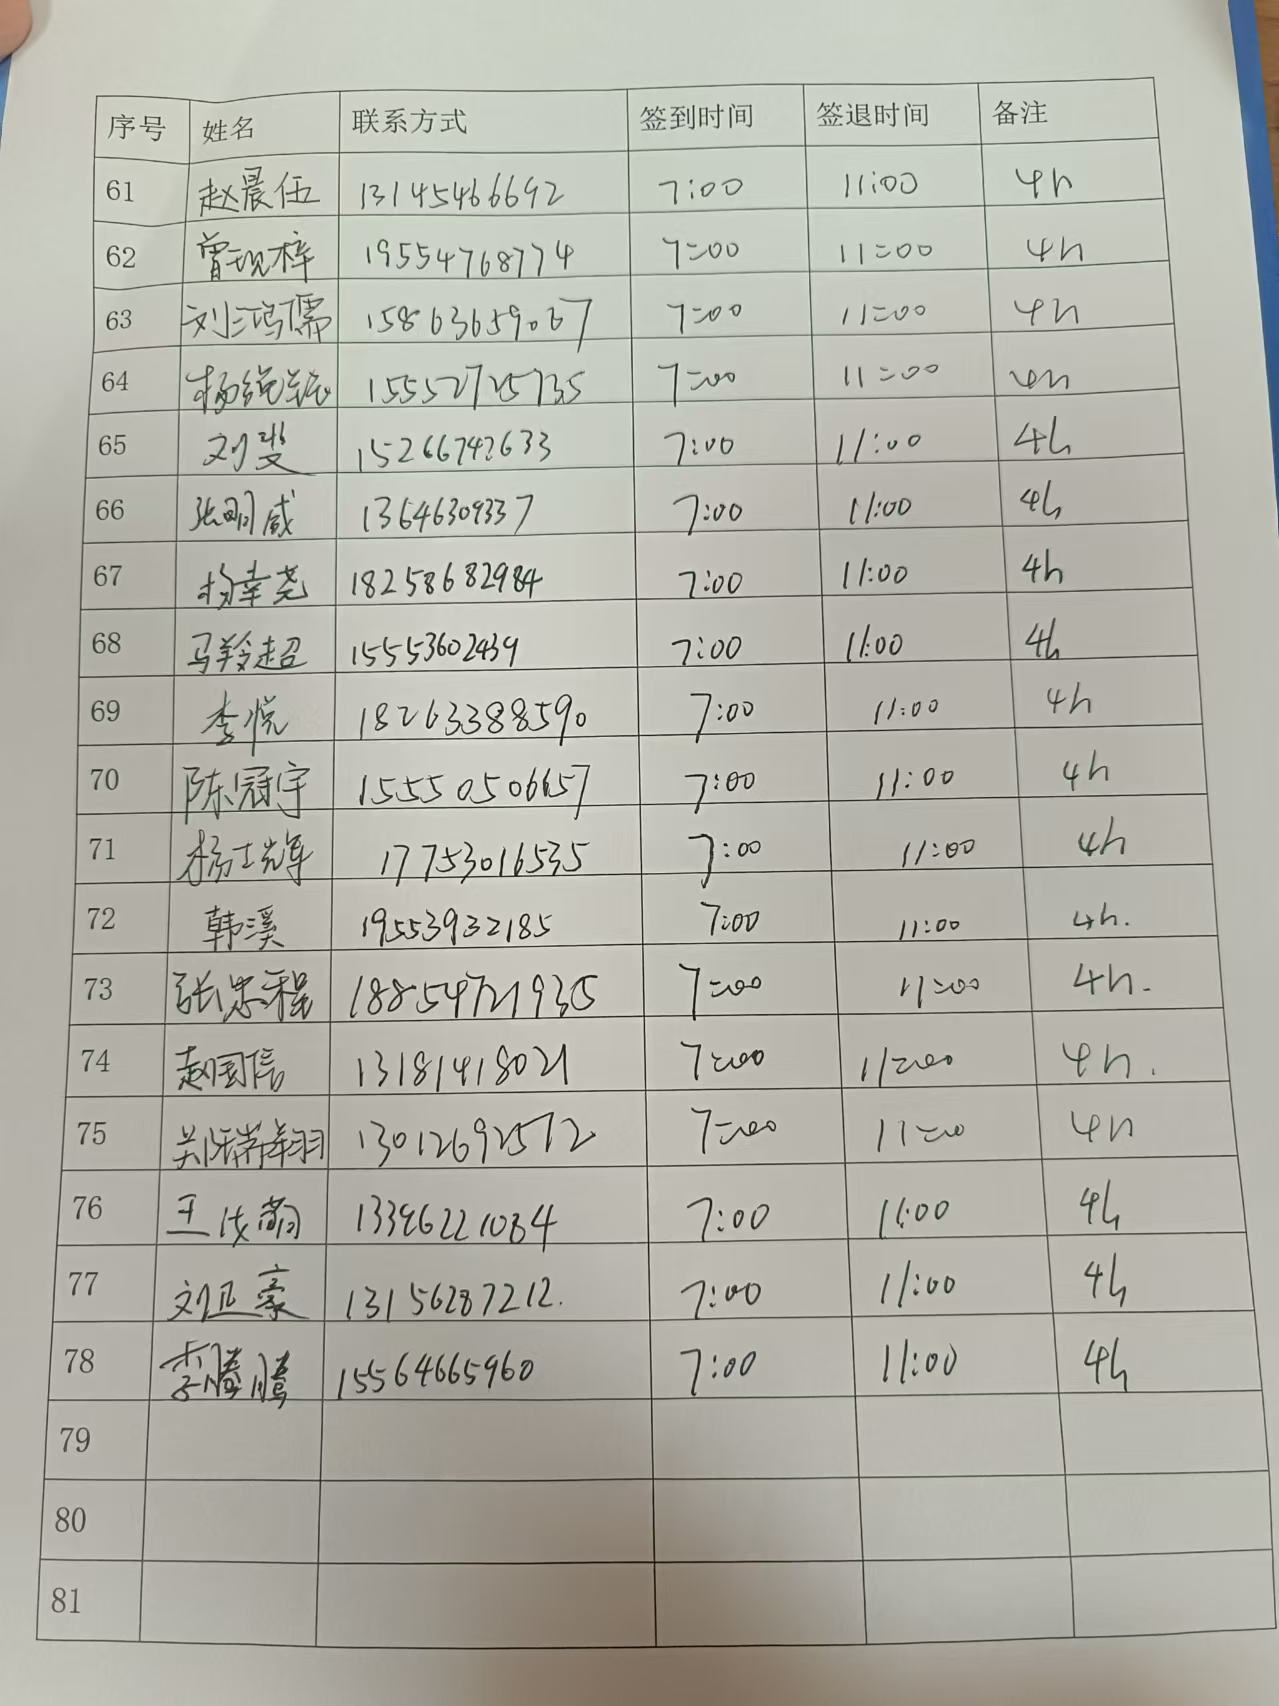 序号 姓名 联系方式 签到时间 签退时间 备注
61 赵晨伍 13145466692 7:00 11:00 4h
62 曾现梓 19554768774 7:00 11:00 4h
63 刘鸿儒 15863659067 7:00 11:00 4h
64 杨 15552725735 7:00 11:00 4h
65 刘斐 15266742633 7:00 11:00 4h
66 张明威 13646309337 7:00 11:00 4h
67 杨幸尧 18258682984 7:00 11:00 4h
68 马羚超 15553602439 7:00 11:00 4h
69 李悦 18263388590 7:00 11:00 4h
70 陈冠宇 15550506657 7:00 11:00 4h
71 杨士辉 17753016535 7:00 11:00 4h
72 韩溪 19553932185 7:00 11:00 4h.
73 张忠程 18854721935 7:00 11:00 4h.
74 赵国信 13181418021 7:00 11:00 4h.
75 13012692572 7:00 11:00 4h
76 王 13396221084 7:00 11:00 4h
77 刘正豪 13156287212. 7:00 11:00 4h
78 李腾腾 15564665960 7:00 11:00 4h
79
80
81